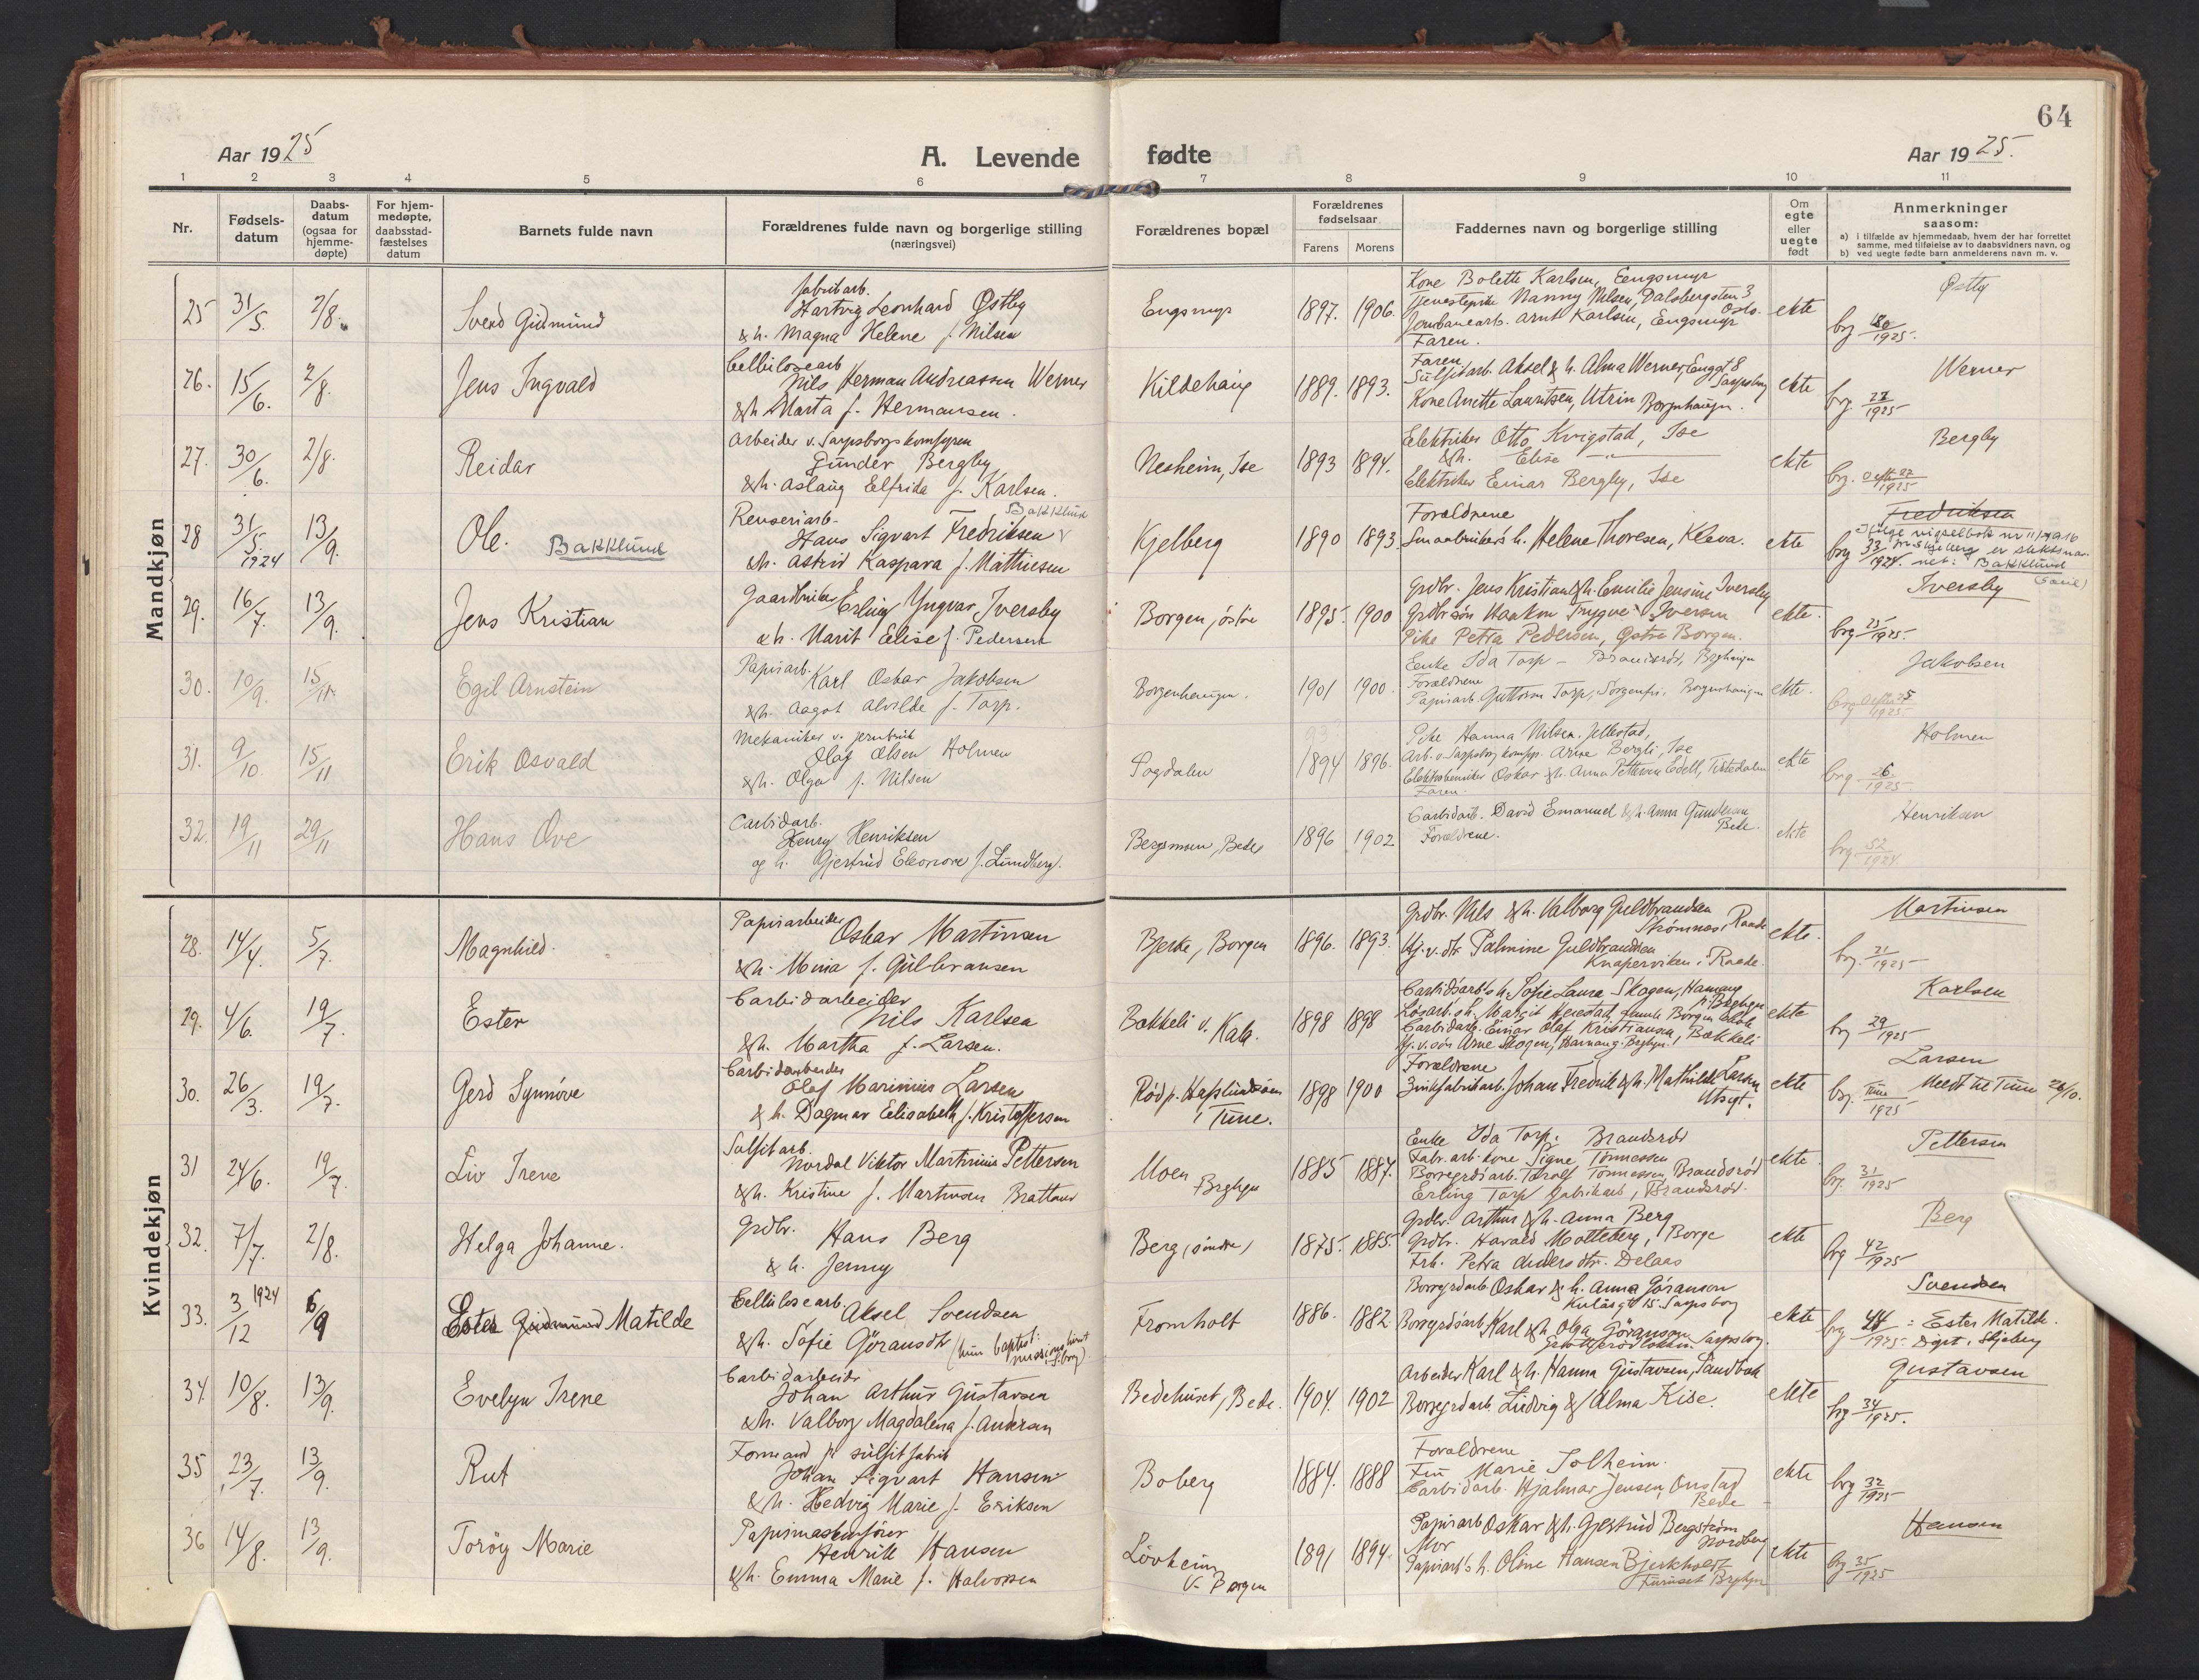 64
Aar 1925
A. Levende fødte
Aar 1925.
1 2 3 4 5 6 7 8 9 10 11
Nr.
Fødsels-
datum
Daabs-
datum
(ogsaa for
hjemme-
døpte)
For hjem-
medøpte,
daabsstad-
fæstelses
datum
Barnets fulde navn
Forældrenes fulde navn og borgerlige stilling
(næringsvei)
Forældrenes bopæl
Forældrenes
fødselsaar
Farens Morens
Faddernes navn og borgerlige stilling
Om
egte
eller
uegte
født
Anmerkninger
saasom:
a) i tilfælde av hjemmedaab, hvem der har forrettet
samme, med tilføielse av to daabsvidners navn, og
b) ved uegte fødte barn anmelderens navn m. v.
Mandkjøn
25 31/5. 2/8. Svend Gudmund
Fabrikarb.
Hartvig Leonhard Østby
& h. Magna Helene f. Nilsen
Engsmyr 1897. 1906.
Kone Bolette Karlsen, Engsmyr
Tjenestepike Nanny Nilsen, Dalsbergsten 3
Oslo.
Jernbanearb. Arnt Karlsen, Engsmyr
Faren.
ekte
Østby
brg 80/1925.
26. 15/6. 2/8. Jens Ingvald
Cellulosearb
Nils Herman Andreassen Werner
& h. Marta f. Hermansen.
Kildehaug 1889. 1893.
Faren
Sulfitarb. Aksel & h. Alma Werner, Enggt 8
Sarpsborg
Kone Anette Lauritsen, Utsin Borgenhaugen.
ekte
Werner
brg. 27/1925
27. 30/6. 2/8. Reidar
Arbeider v. Sarpsborg komp.
Gunder Bergby
& h. Aslaug Elfrida f. Karlsen.
Nesheim, Ise 1893 1894.
Elektriker Otto Kvigstad, Ise
& h. Elise —"—
Elektriker Einar Bergby, Ise
ekte
Bergby
brg. 1925
28 31/5. 1924 13/9. Ole. Bakklund
Renseriarb.
Bakklund
Hans Sigvart Fredriksen
& h. Astrid Kaspara f. Mathiesen
Kjelberg 1890 1893.
Forældrene
Smaabrukers h. Helene Thoresen, Klava.
ekte
Fredriksen
Ifølge vigselbok nr 11/1916
brg 33/1924. er slektsnav-
net: Bakklund
29. 16/7. 13/9. Jens Kristian
Gaardbruker Erling Yngvar Iversby
& h. Marit Elise f. Pedersen
Borgen, østre 1895. 1900
Grdbr. Jens Kristian & h. Emilie Jensine Iversby
Grdbr.søn Haakon Trygve Iversen
Pike Petra Pedersen, Østre Borgen.
ekte.
Iversby
brg 25/1925.
30. 10/9. 15/11. Egil Arnstein
Papirarb.
Karl Oskar Jakobsen
& h. Aagot Alvilde f. Torp.
Borgenhaugen. 1901 1900.
Enke Ida Torp — Brandsrød, Brghaugen
Forældrene
Papirarb. Guttorm Torp, Sorgenfri, Borgenhaugen
ekte.
Jakobsen
brg 1925
31. 9/10. 15/11 Erik Osvald
Mekaniker v. jernbruk
Olaf Olsen Holmen
& h. Olga f. Nilsen
Sogdalen 1894 1896.
Pike Hanna Nilsen,
Arb. v. Sarpsborg komp. Arne Bergli, Ise
Elektrokemiker Oskar & h. Anna Pettersen Edell, Tistedalen
Faren.
ekte
Holmen
brg 26./1925
32. 19/11 29/11 Hans Ove
Carbidarb.
Henry Henriksen
og h. Gjertrud Eleonore f. Lundberg.
Bergsmoen, Bede 1896 1902
Carbidarb. David Emanuel & h. Anna Gundersen
Bede.
Forældrene.
ekte
Henriksen
brg 52/1924
Kvindekjøn
28. 14/4. 5/7. Magnhild.
Papirarbeider Oskar Martinsen
& h. Mina f. Gulbransen
Bjerke, Borgen 1896. 1893.
Grdbr. Nils & h. Valborg Guldbrandsen
Strømnes, Raade
Hj.v. dtr. Palmine Guldbrandsen
Knapervíken i Raade.
ekte.
Martinsen
brg. 21/1925
29. 4/6. 19/7. Ester
Carbidarbeider
Nils Karlsen
& h. Martha f. Larsen.
Bakkeli v. Kala. 1898 1898
Carbidsarb's h. Sofie Laura Skogen, Hamang
p. Brghgn
Løsarb's h. Margit Herestad, gamle Borgen skole
Carbidarb. Einar Olaf Kristiansen, Bakkeli
Hj.v. søn Arne Skogen, Hamang, Brghgn.
ekte
Karlsen
brg 29/1925
30. 26/3. 19/7. Gerd Synnøve
Carbidarbeider
Olaf Marinius Larsen
& h. Dagmar Elisabeth f. Kristoffersen
Rød p. Hafslundsøen
i Tune. 1898 1900
Forældrene
Zinkfabrikarb. Johan Fredrik & h. Mathilde Larsen
Utsigt.
ekte
Larsen
brg. Tune/1925 Meldt til Tune 26/10.
31 24/6. 19/7. Liv Irene
Sulfitarb.
Nordal Viktor Martinius Pettersen
& h. Kristine f. Martinsen Brattland
Moen
Brghgn 1885 1887.
Enke Ida Torp. Brandsrød
Fabr.arb. kone Signe Tønnessen
Borregrdsarb. Torolf Tønnessen Brandsrød
Erling Torp fabrikarb, Brandsrød.
ekte
Pettersen
brg. 31/1925
32. 7/7. 2/8. Helga Johanne.
Grdbr. Hans Berg
& h. Jenny
Berg, søndre, 1875. 1885
Grdbr. Arthur & h. Anna Berg
Grdbr. Harald Motteberg, Borge
Frk. Petra Andersdtr. Delaas
ekte
Berg
brg 42/1925
33. 3/12 1924 6/9 Ester Gudmund Matilde
Cellulosearb.
Aksel Svendsen
& h. Sofie Göransdtr (hun baptist:
Fromholt 1886. 1882
Borregrdarb Oskar & h. Anna Göranson
Kulåsgt 15. Sarpsborg
Borregrdsarb Karl & h. Olga Göranson
Sarpsborg.
ekte
Svendsen
brg 44/1925 : Ester Matilde.
Døpt i Skjeberg
34. 10/8. 13/9. Evelyn Irene
Carbidarbeider
Johan Arthur Gustavsen
& h. Valborg Magdalena f. Andersen
Bedehuset, Bede. 1904. 1902
Arbeider Karl & h. Hanna Gustavsen, Sandbak
Borregrdarb. Ludvig & Alma Kise.
ekte
Gustavsen
brg 34/1925.
35 23/7. 13/9. Rut
Formand p. sulfitfabrik
Johan Sigvart Hansen
& h. Hedvig Marie f. Eriksen
Boberg 1884. 1888
Forældrene
Fru Marie Solheim.
Carbidarb. Hjalmar Jensen Onstad
Bede
ekte
brg 32/1925
36 14/8. 13/9. Torøy Marie
Papirmaskinfører
Henrik Hansen
& h. Emma Marie f. Halvorsen
Løvheim
v. Borgen 1891 1894.
Papirarb Oskar & h. Gjertrud Bergstrøm
Nordberg
Mor
Papirarb's h. Oline Hansen Bjerkholdt
Furuset Brghgn
ekte
Hansen
brg 35/1925